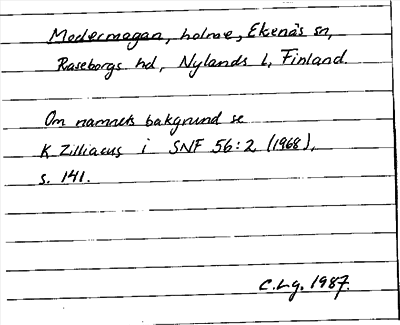 Medermagan, holme, Ekenäs sn,
Raseborgs hd, Nylands l, Finland.
Om namnets bakgrund se
K Zilliacus i SNF 56:2 (1968),
s. 141.
C.Lg. 1987.